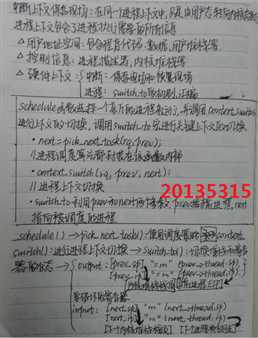 中断上下文保存现场:在同一进程上下文中,只是由用户态转向内核态执行
进程上下文包含了进程执行需要的所有信息
△用户地址空间:包含程序代码、数据、用户堆栈等
△控制信息:进程描述符、内核堆栈等
△硬件上下文 中断:保存现场和恢复现场
进程:switch_to
schedule函数选择一个新的进程来运行,并调用context_switch
进行上下文的切换,调用switch_to宏进行关键上下文切换
• next = pick_next_task(rq, prev);
//进程调度算法都封装在该函数内部
• context_switch(rq, prev, next);
//进程上下文切换
20135315
• switch_to利用prev和next两个参数:prev指当前进程, next
指向被调度的进程
schedule() → pick_next_task():使用调度策略
switch():进行进程上下文切换 → switch_to():
output: [prev_sp] "=m" (prev->thread.sp)
[prev_ip] "=m" (prev->thread.ip)
input: [next_sp] "m" (next->thread.sp)
[next_ip] "m" (next->thread.ip)